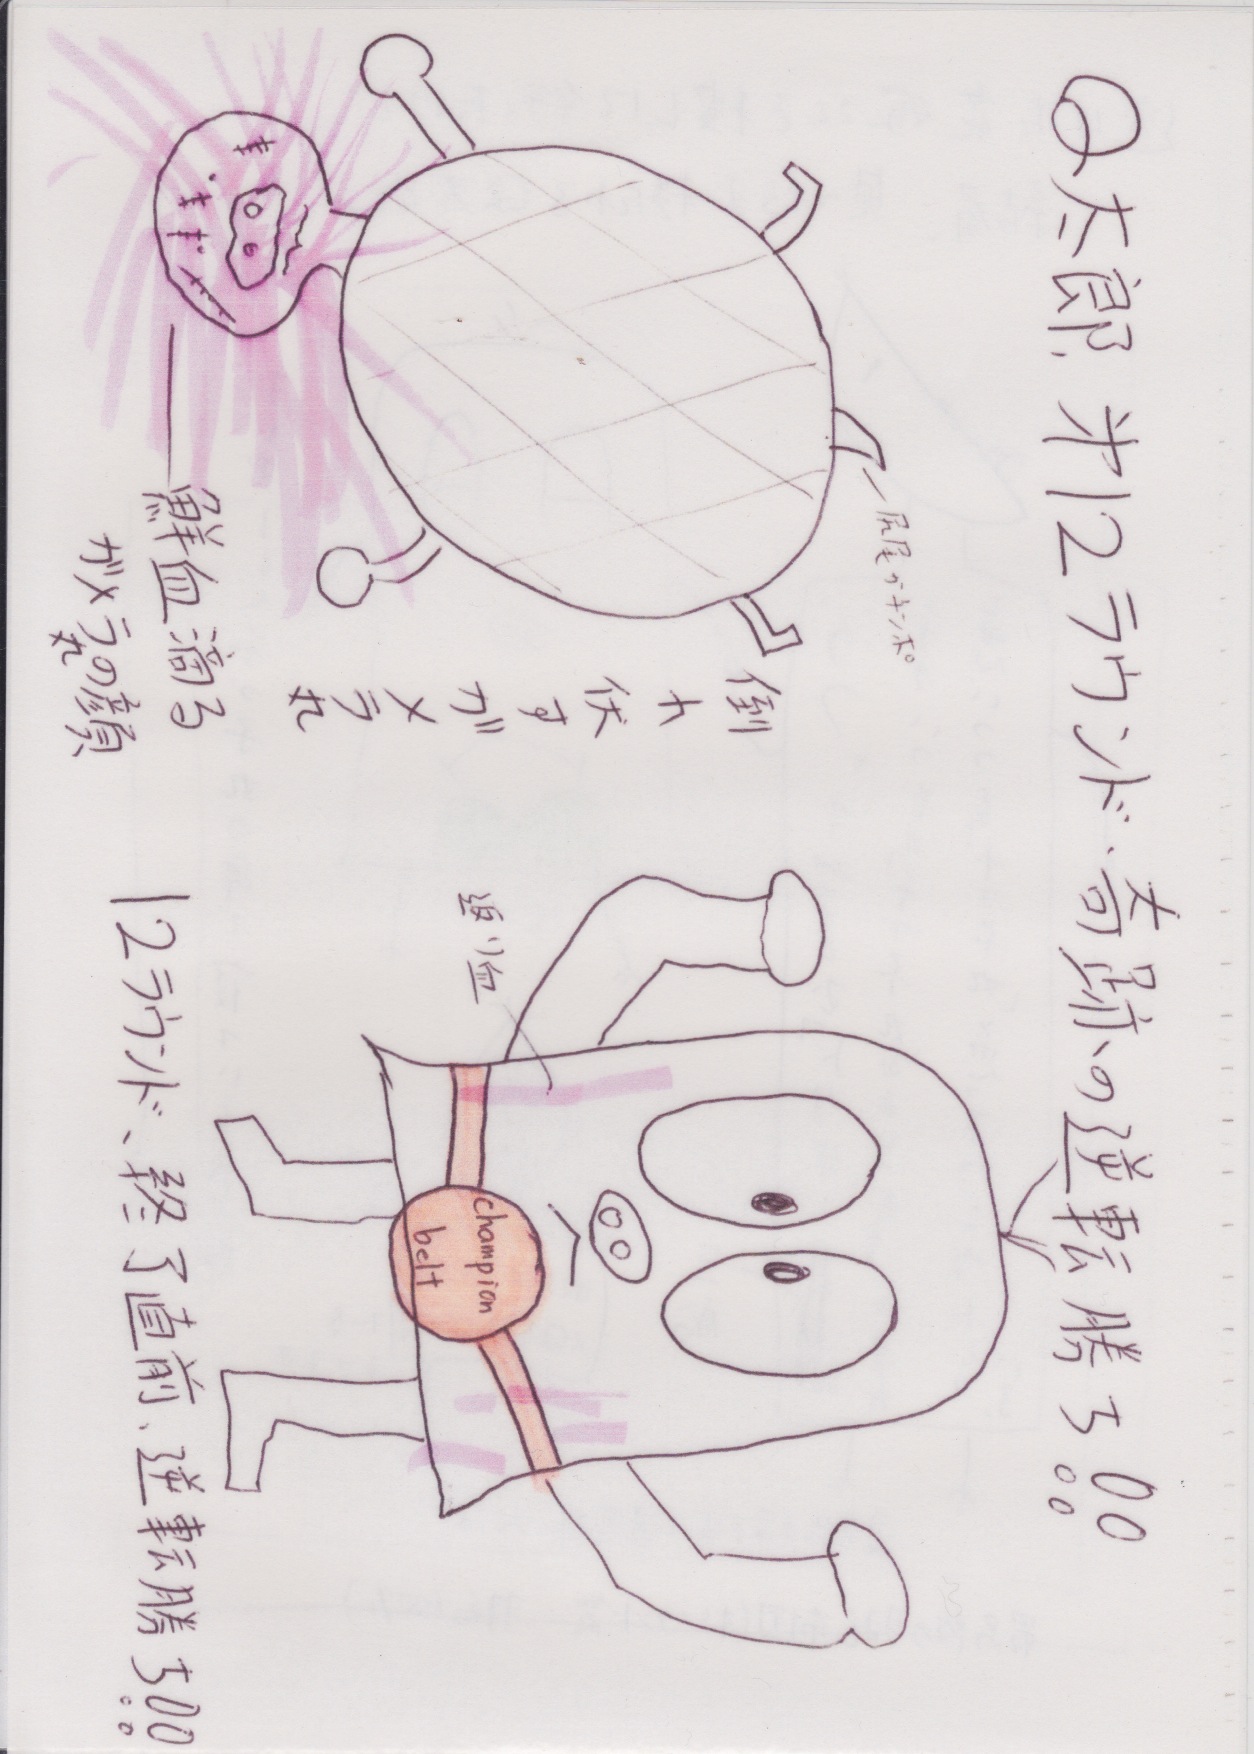 Q太郎、才12ラウンド、奇跡の逆転勝ち!!
尻尾がチンポ
倒れ伏すガメラ丸
返り血
champion
belt
鮮血滴る
ガメラ丸の顔
12ラウンド、終了直前、逆転勝ち!!